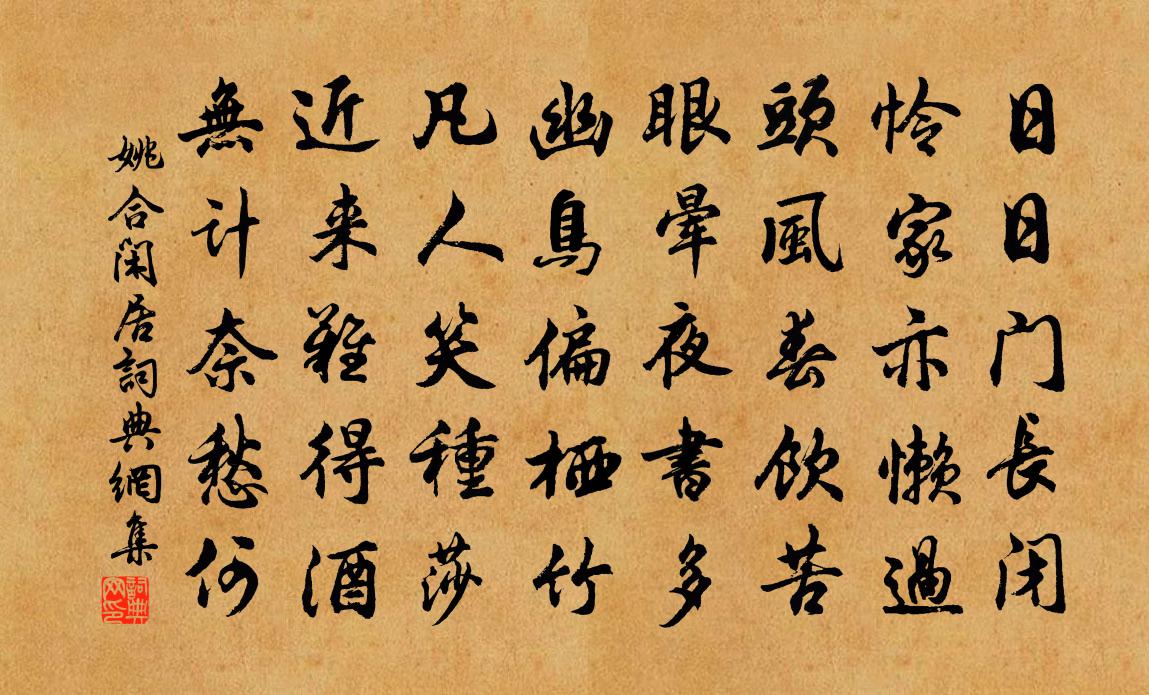 日日门長闭
怜家亦懒過
頭風春飲苦
眼暈夜書多
幽鳥偏栖竹
凡人笑種莎
近来難得酒
無计奈愁何
姚合闲居詞典網集
詞典网印